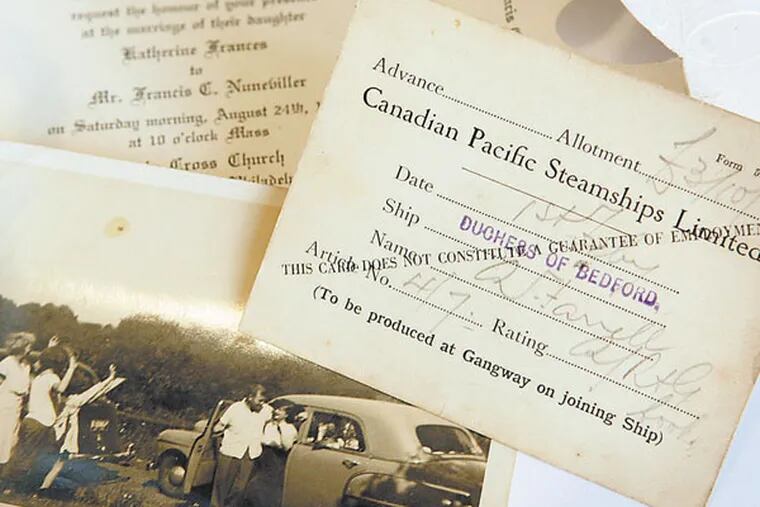 request the honour of your
at the marriage of their daughter
Katherine Frances
to
Mr. Francis C. Nuneviller
on Saturday morning, August 24th,
at 10 o'clock Mass
Cross Church
Philadel
Advance Allotment
Form
Canadian Pacific Steamships Limited
Date
Ship DUCHESS OF BEDFORD.
THIS CARD DOES NOT CONSTITUTE A GUARANTEE OF EMPLOYMEN
Name
Article No. 417. Rating
(To be produced at Gangway on joining Ship)